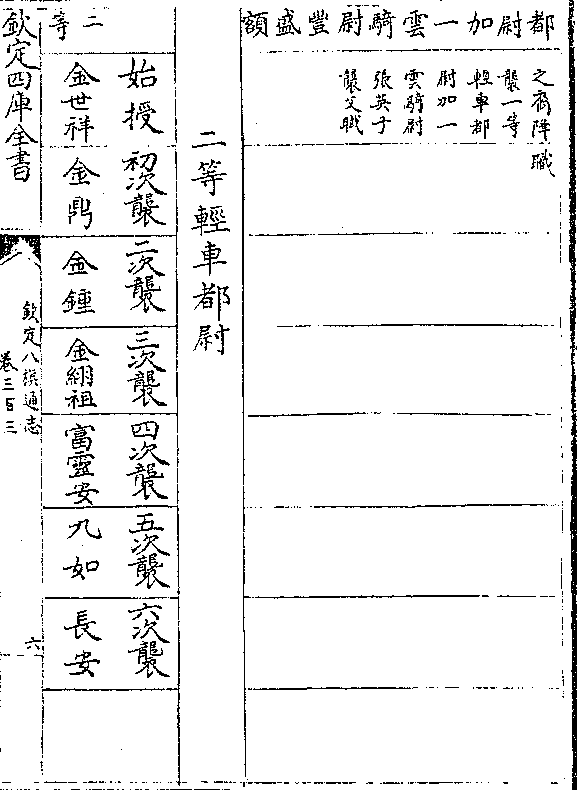 都尉加一雲騎尉豐盛額
之裔降職
襲一等
輕車都
尉加一
雲騎尉
張英子
襲父職
二等輕車都尉
始授
初次襲
二次襲
三次襲
四次襲
五次襲
六次襲
二等
金世祥
金鼎
金鍾
金繩祖
富靈安
九如
長安
欽定四庫全書
欽定八旗通志
卷三百三
六